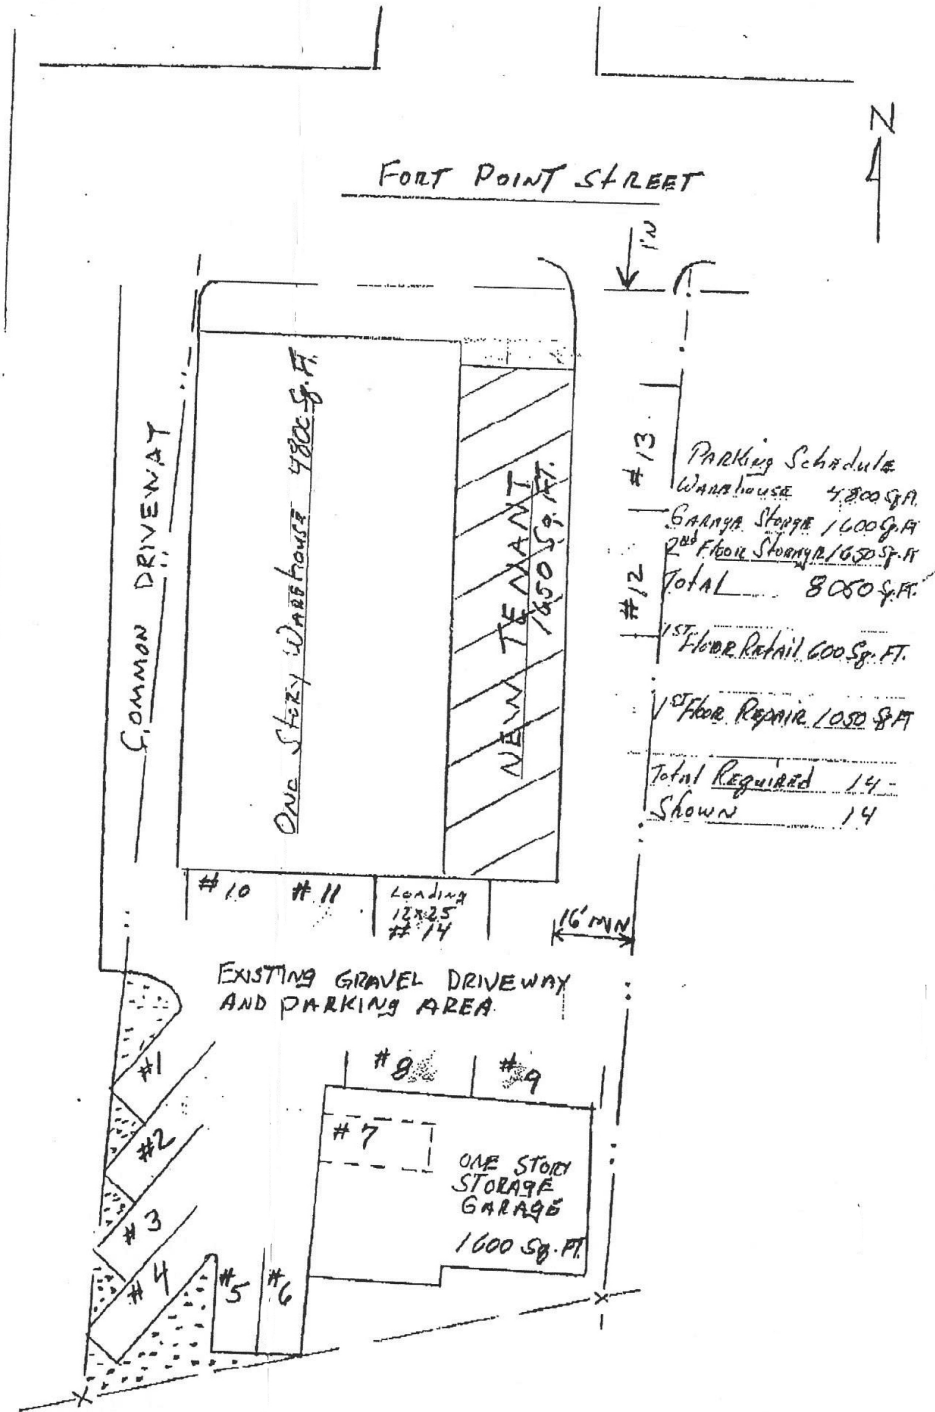 N
FORT POINT STREET
IN
COMMON DRIVEWAY
ONE STORY WAREHOUSE 4800 Sq. Ft.
NEW TENANT
1650 Sq. FT.
#13
#12
PARKING SCHEDULE
WAREHOUSE 4800 Sq. Ft
GARAGE STORAGE 1600 Sq. Ft
2nd Floor STORAGE 1650 Sq. Ft
Total 8050 Sq. Ft.
1ST Floor Retail 600 Sq. FT.
1ST Floor Repair 1050 Sq FT
Total Required 14
Shown 14
#10 #11 LOADING
12x25
#14
16' MIN
EXISTING GRAVEL DRIVEWAY
AND PARKING AREA
#1
#2
#3
#4
#5 #6
#7
#8 #9
ONE STORY
STORAGE
GARAGE
1600 Sq. FT.